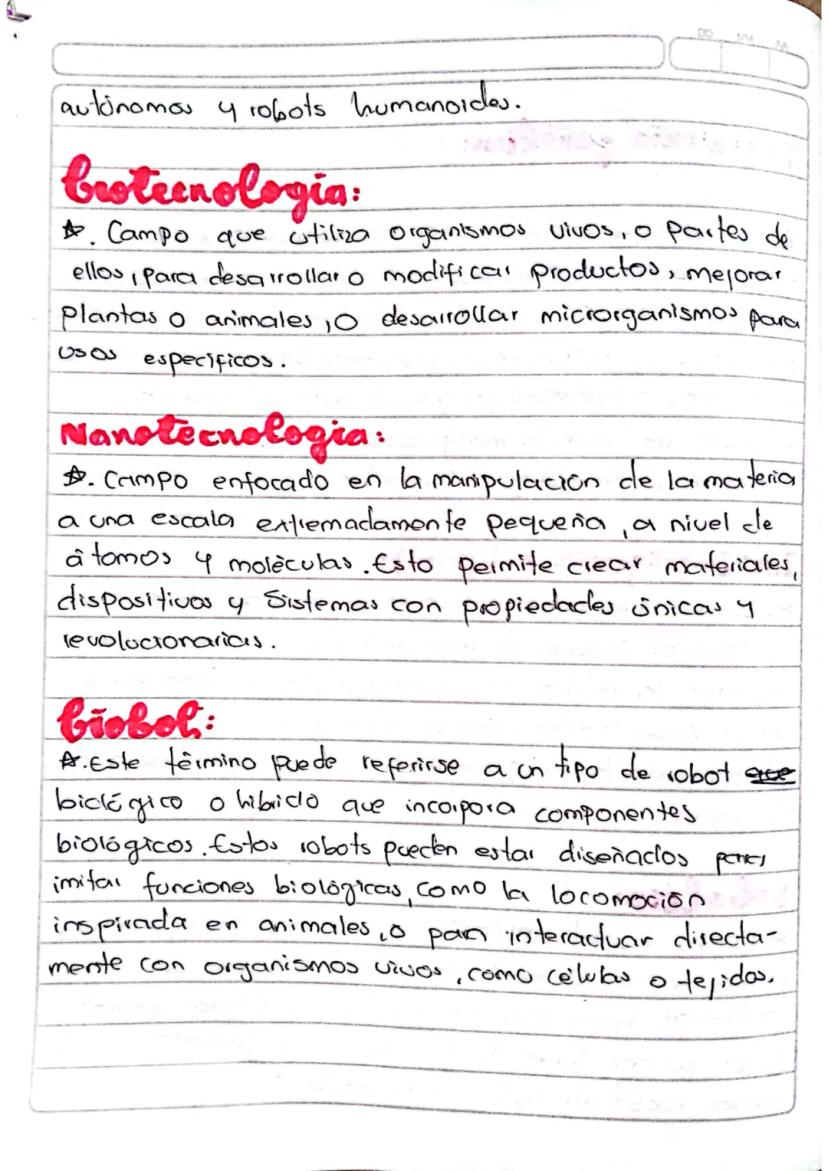 autónomos y robots humanoides.
Biotecnología:
☆. Campo que utiliza organismos vivos, o partes de
ellos, para desarrollar o modificar productos, mejorar
plantas o animales, o desarrollar microorganismos para
usos específicos.
Nanotecnología:
☆. Campo enfocado en la manipulación de la materia
a una escala extremadamente pequeña, a nivel de
átomos y moléculas. Esto permite crear materiales,
dispositivos y sistemas con propiedades únicas y
revolucionarias.
Biobot:
☆. Este término puede referirse a un tipo de robot que
biológico o hibrido que incorpora componentes
biológicos. Estos robots pueden estar diseñados para
imitar funciones biológicas, como la locomoción
inspirada en animales, o para interactuar directa-
mente con organismos vivos, como células o tejidos.